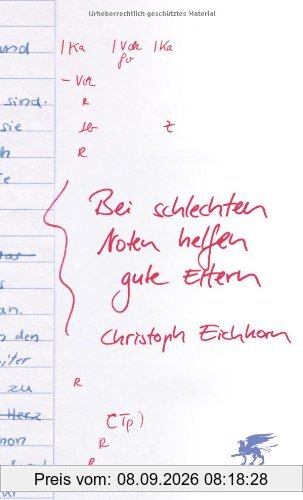 Urheberrechtlich geschütztes Material
und | Ka | Vok | Ka
gr
– Vok
sind. R
sie sb Z
h R
e
Bei schlechten
Noten helfen
gute Eltern
an.
n den Christoph Eichhorn
iter
zu R
Herz (Tp)
hon R
R
Preis vom: 08.09.2026 08:18:28